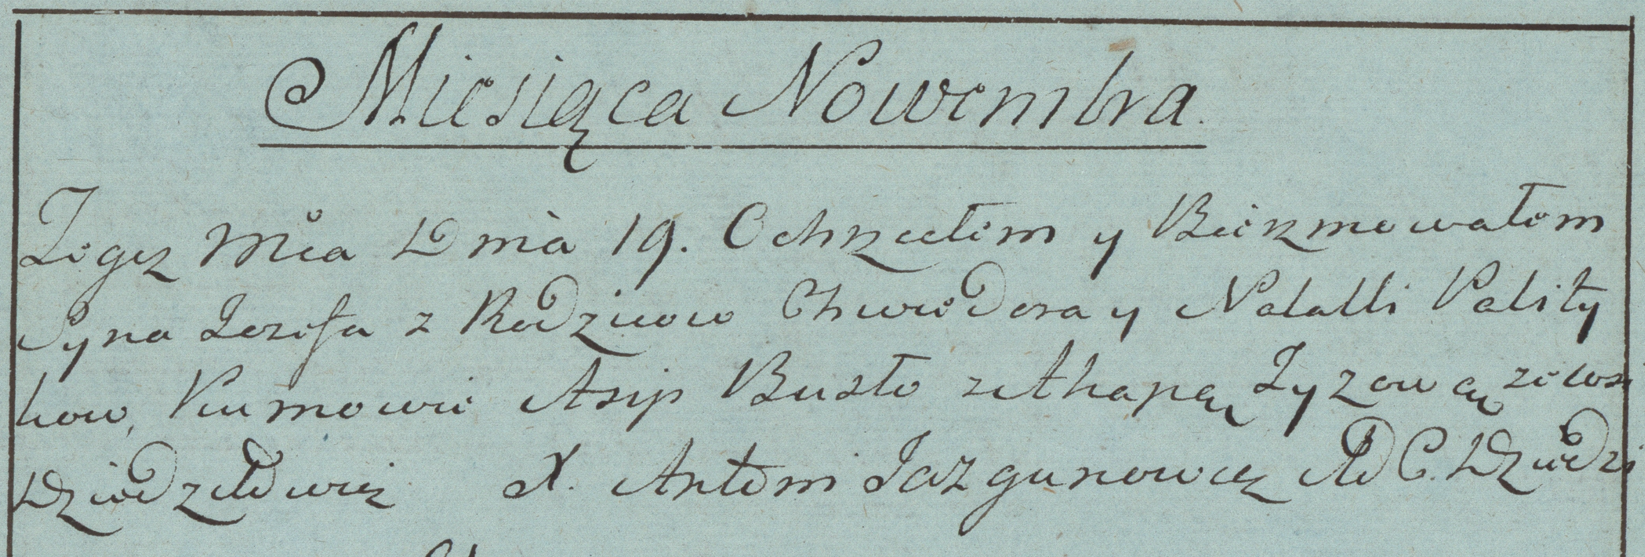 Miesiąca Nowembra.
Tegoz Mca Dnia 19. Ochrzciłem y Bierzmowałem
Syna Jozefa z Rodzicow Chwiedora y Natalli Pality
kow, Kumowie Asip Busło z Ahapą Zyzową ze wsi
Dziedziłowicz X. Antoni Jazgunowicz AD C. Dziedzi